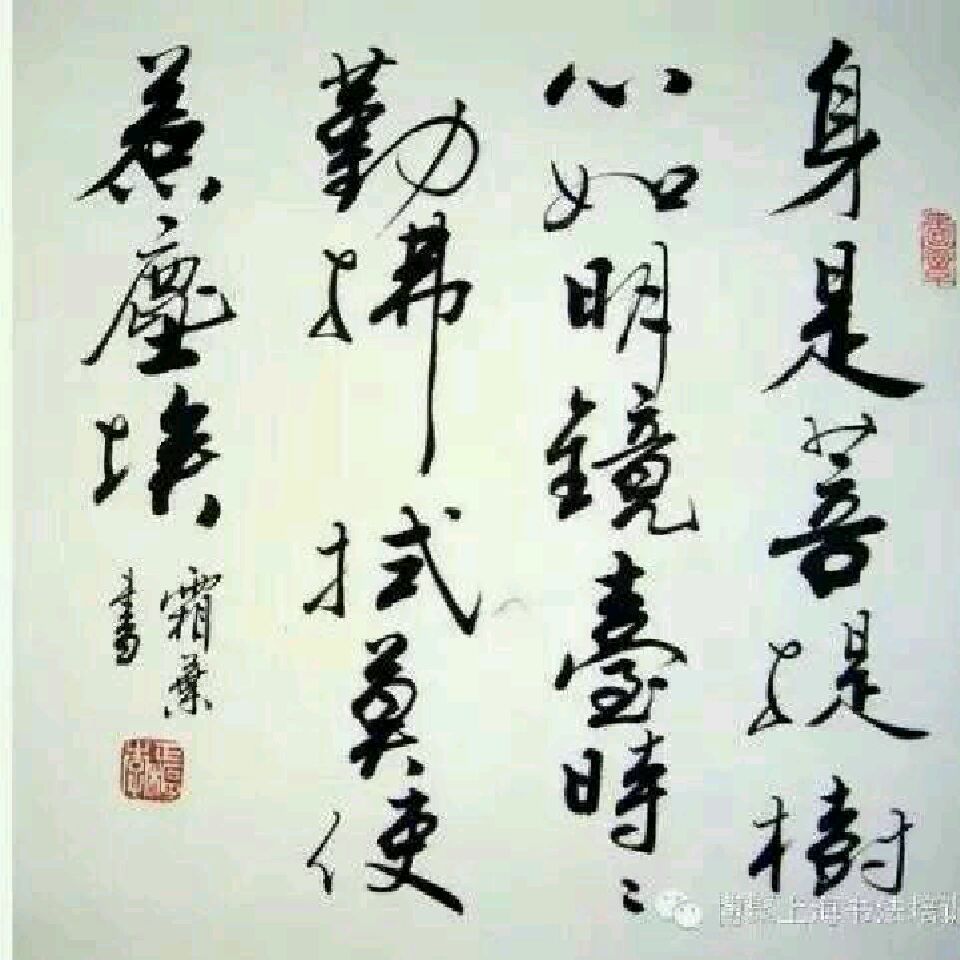 身是菩提樹
心如明鏡臺時〻
勤拂拭莫使
惹塵埃
霜葉
書
上海书法培